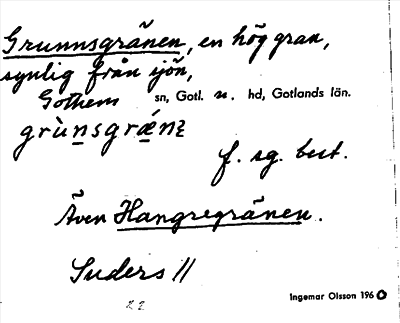 Grunnsgränen, en hög gran,
synlig från sjön,
Gothem sn, Gotl. n. hd, Gotlands län.
grùnsgrǽnꝛ
f. sg. best.
Även Hangregränen.
Suders //
22
Ingemar Olsson 1960